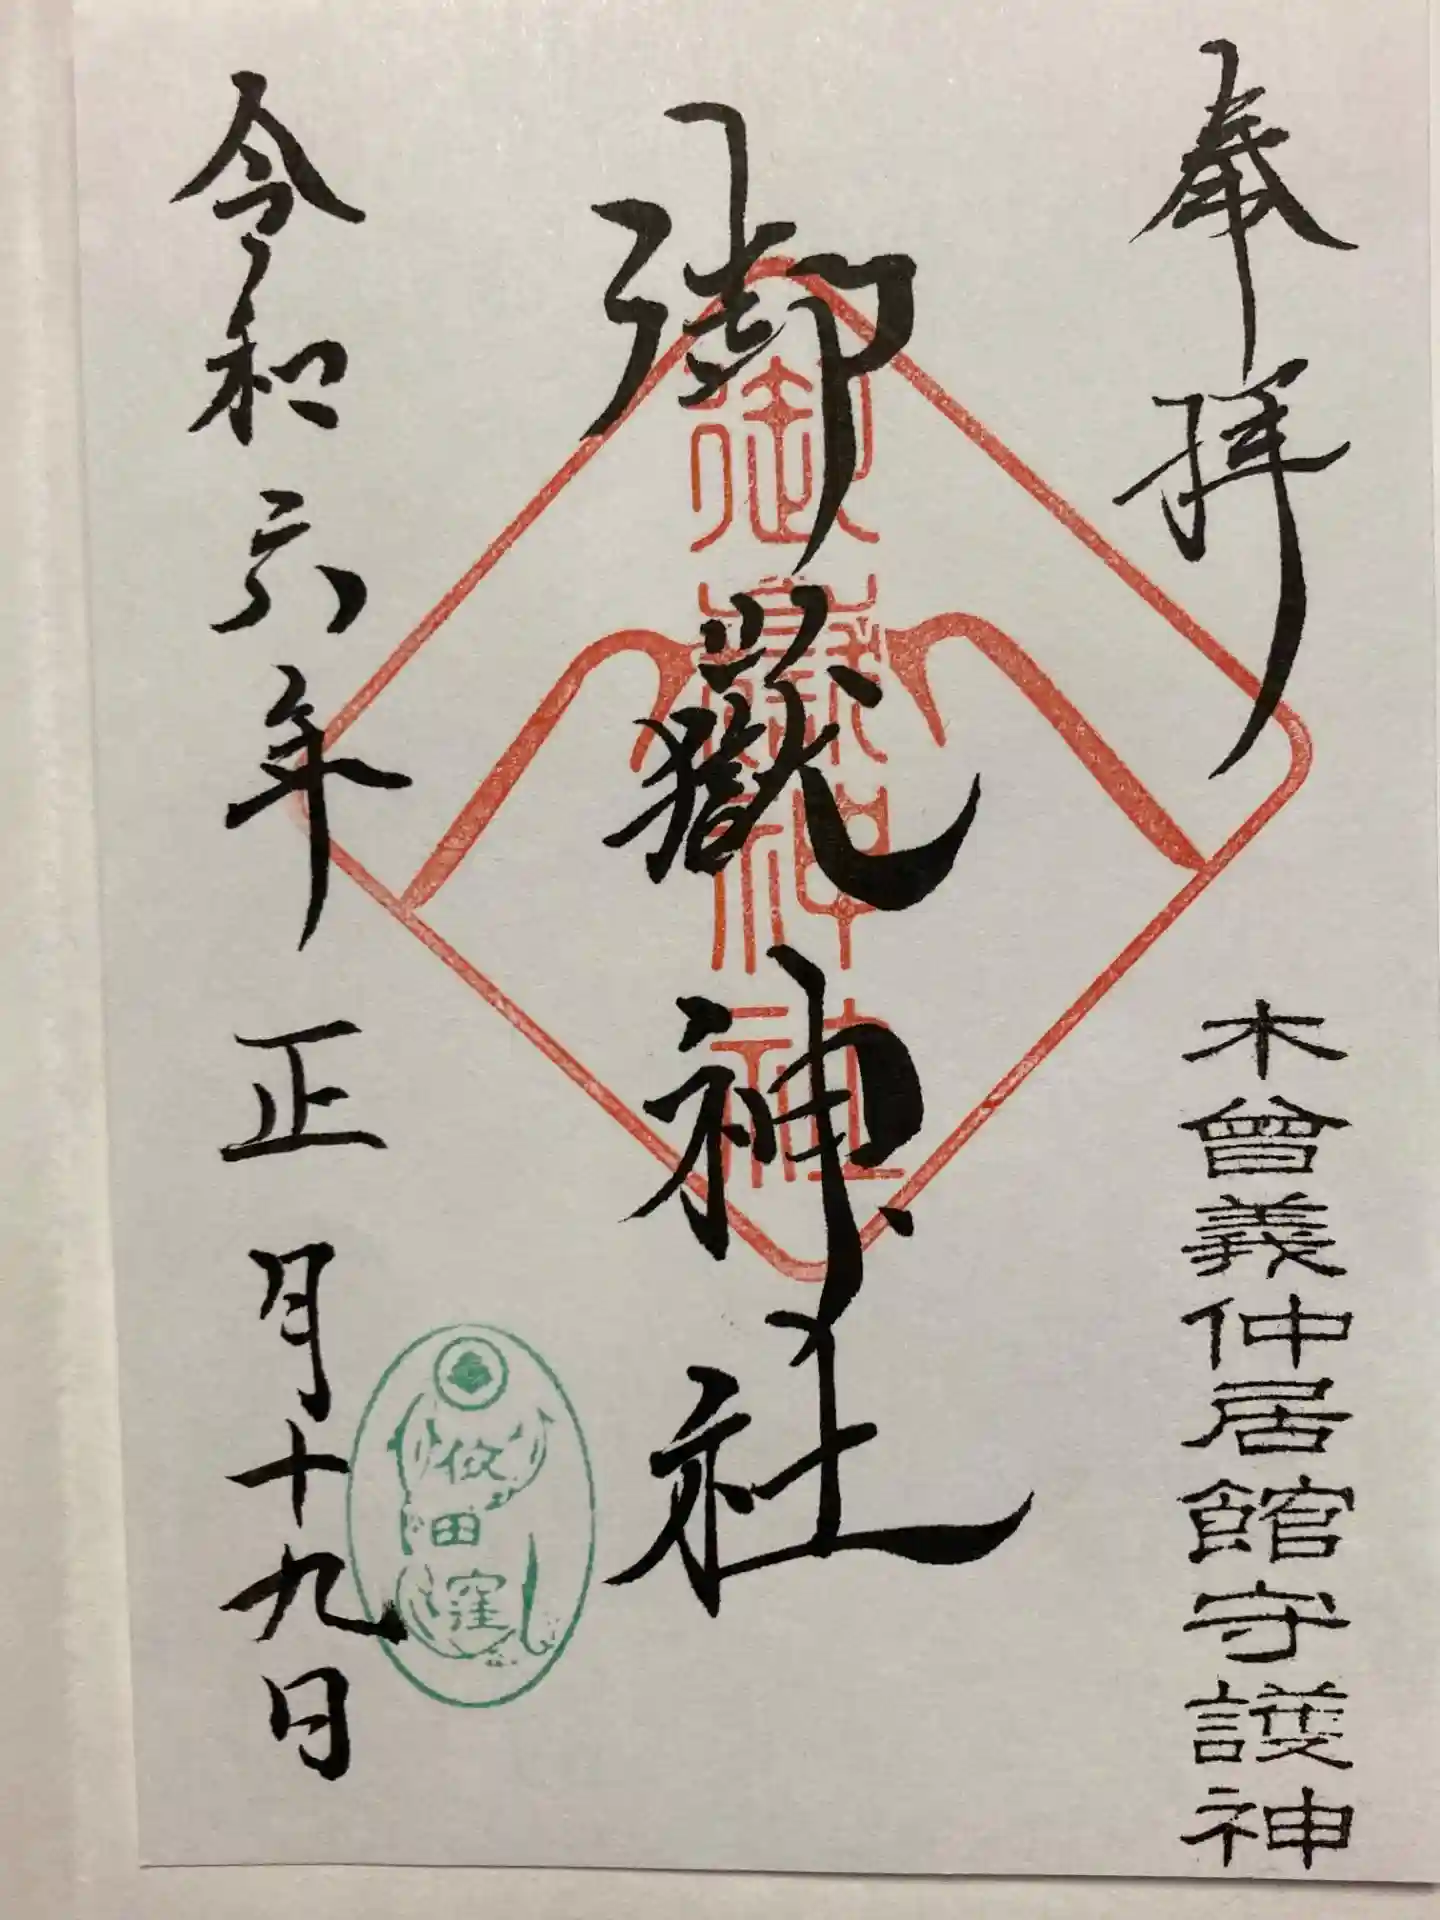 奉拝
木曾義仲居館守護神
御嶽神社
御嶽神社
令和六年正月十九日
依田窪